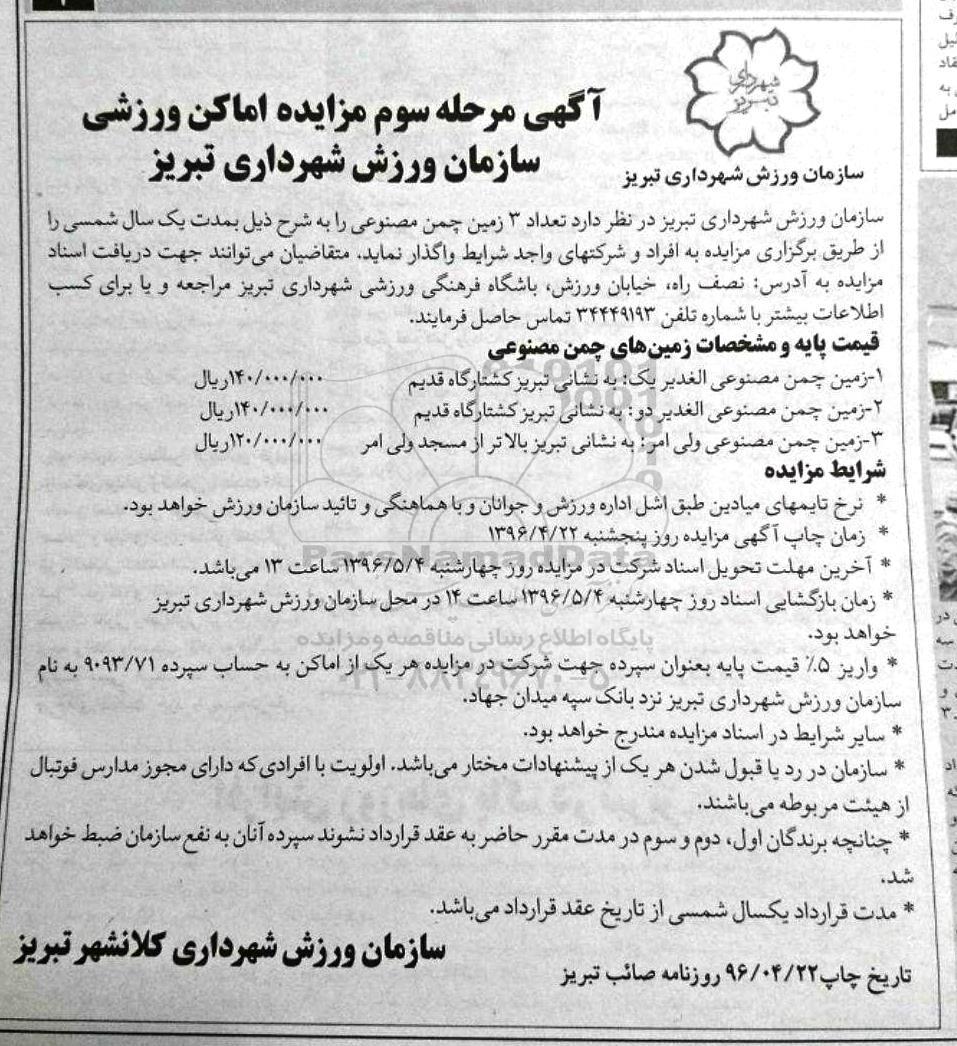 شهرداری
تبریز
سازمان ورزش شهرداری تبریز
آگهی مرحله سوم مزایده اماکن ورزشی
سازمان ورزش شهرداری تبریز
سازمان ورزش شهرداری تبریز در نظر دارد تعداد ۳ زمین چمن مصنوعی را به شرح ذیل بمدت یک سال شمسی را
از طریق برگزاری مزایده به افراد و شرکتهای واجد شرایط واگذار نماید. متقاضیان می‌توانند جهت دریافت اسناد
مزایده به آدرس: نصف راه، خیابان ورزش، باشگاه فرهنگی ورزشی شهرداری تبریز مراجعه و یا برای کسب
اطلاعات بیشتر با شماره تلفن ۳۴۴۴۹۱۹۳ تماس حاصل فرمایند.
قیمت پایه و مشخصات زمین‌های چمن مصنوعی
۱-زمین چمن مصنوعی الغدیر یک: به نشانی تبریز کشتارگاه قدیم ۱۴۰/۰۰۰/۰۰۰ریال
۲-زمین چمن مصنوعی الغدیر دو: به نشانی تبریز کشتارگاه قدیم ۱۴۰/۰۰۰/۰۰۰ریال
۳-زمین چمن مصنوعی ولی امر: به نشانی تبریز بالاتر از مسجد ولی امر ۱۲۰/۰۰۰/۰۰۰ریال
شرایط مزایده
* نرخ تایمهای میادین طبق اشل اداره ورزش و جوانان و با هماهنگی و تائید سازمان ورزش خواهد بود.
* زمان چاپ آگهی مزایده روز پنجشنبه ۱۳۹۶/۴/۲۲
* آخرین مهلت تحویل اسناد شرکت در مزایده روز چهارشنبه ۱۳۹۶/۵/۴ ساعت ۱۳ می‌باشد.
* زمان بازگشایی اسناد روز چهارشنبه ۱۳۹۶/۵/۴ ساعت ۱۴ در محل سازمان ورزش شهرداری تبریز
خواهد بود.
* واریز ۵٪ قیمت پایه بعنوان سپرده جهت شرکت در مزایده هر یک از اماکن به حساب سپرده ۹۰۹۳/۷۱ به نام
سازمان ورزش شهرداری تبریز نزد بانک سپه میدان جهاد.
* سایر شرایط در اسناد مزایده مندرج خواهد بود.
* سازمان در رد یا قبول شدن هر یک از پیشنهادات مختار می‌باشد. اولویت با افرادی که دارای مجوز مدارس فوتبال
از هیئت مربوطه می‌باشند.
* چنانچه برندگان اول، دوم و سوم در مدت مقرر حاضر به عقد قرارداد نشوند سپرده آنان به نفع سازمان ضبط خواهد
شد.
* مدت قرارداد یکسال شمسی از تاریخ عقد قرارداد می‌باشد.
سازمان ورزش شهرداری کلانشهر تبریز
تاریخ چاپ ۹۶/۰۴/۲۲ روزنامه صائب تبریز
ParsNamadData
پایگاه اطلاع رسانی مناقصه و مزایده